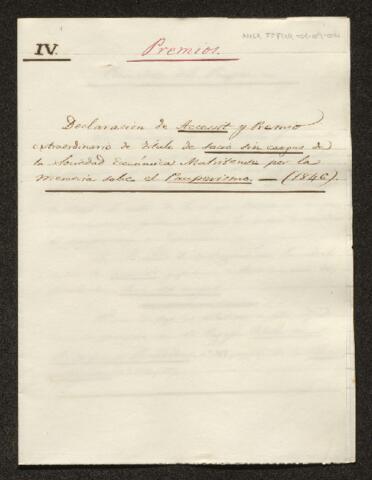 IV.
Premios.
Declaracion de Accessit y Premio
extraordinario de titulo de socio sin cargas de
la Sociedad Económica Matritense por la
Memoria sobre el Pauperismo. — (1846).